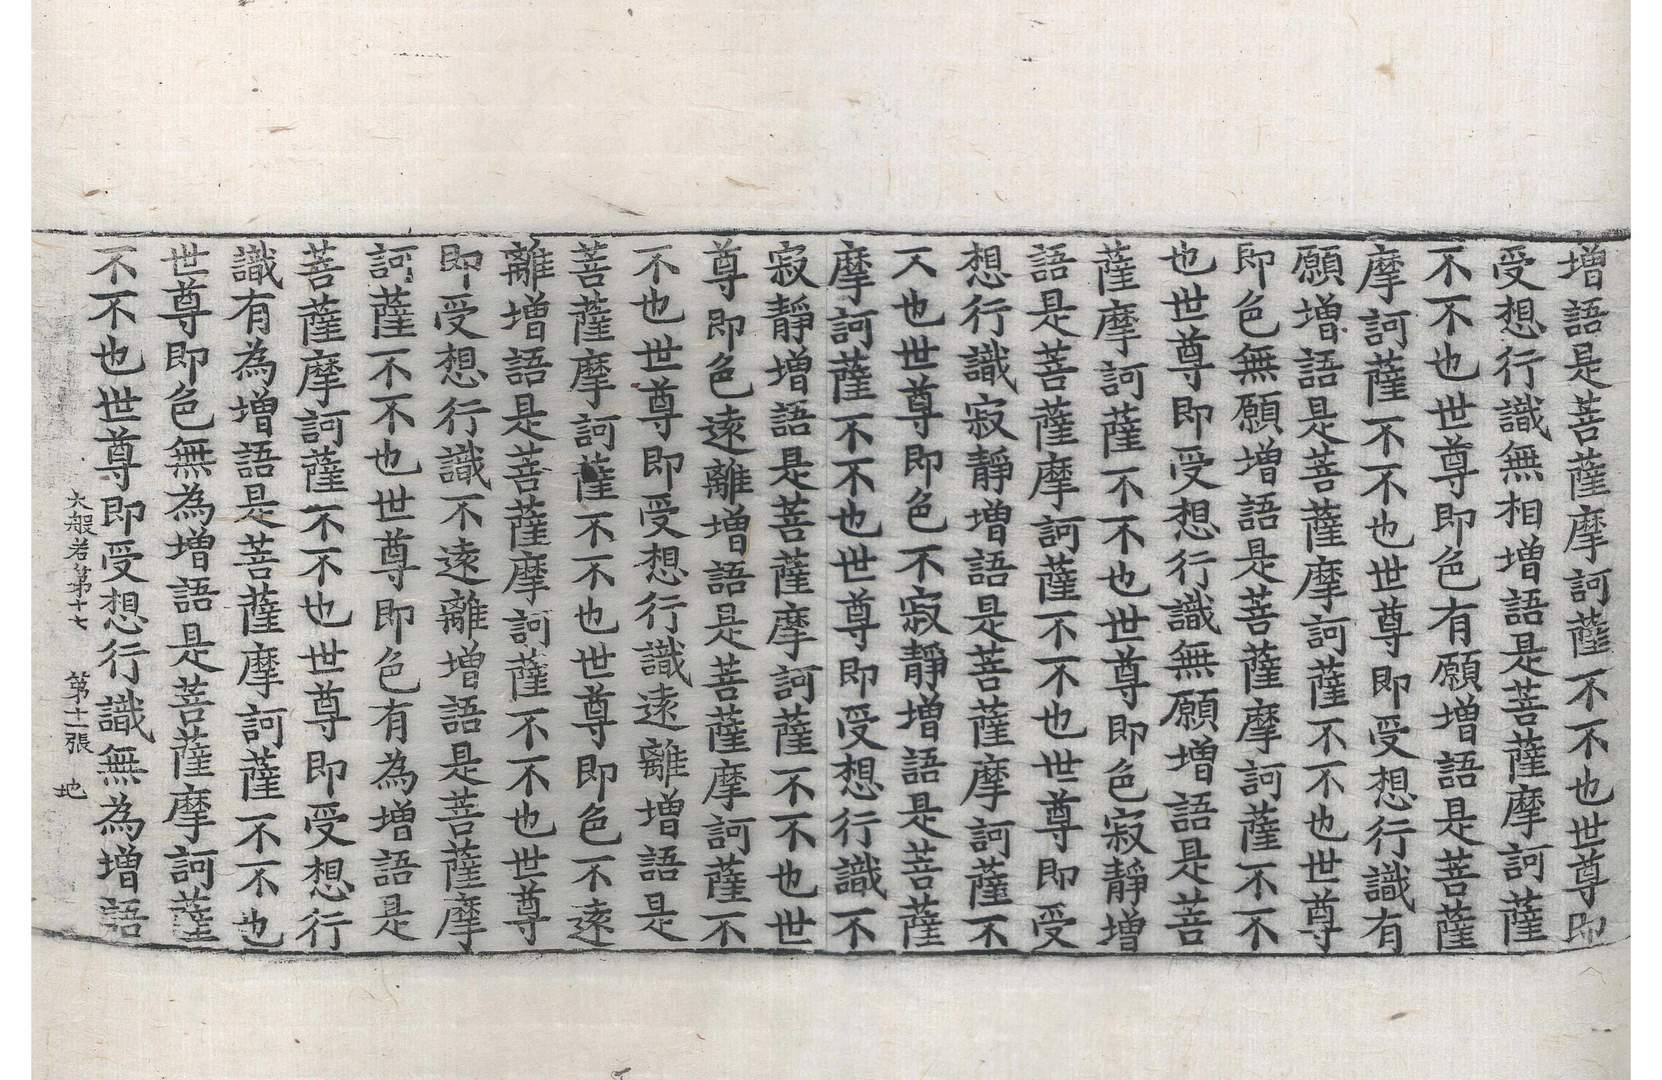 增語是菩薩摩訶薩不不也世尊即
受想行識無相增語是菩薩摩訶薩
不不也世尊即色有願增語是菩薩
摩訶薩不不也世尊即受想行識有
願增語是菩薩摩訶薩不不也世尊
即色無願增語是菩薩摩訶薩不不
也世尊即受想行識無願增語是菩
薩摩訶薩不不也世尊即色寂靜增
語是菩薩摩訶薩不不也世尊即受
想行識寂靜增語是菩薩摩訶薩不
不也世尊即色不寂靜增語是菩薩
摩訶薩不不也世尊即受想行識不
寂靜增語是菩薩摩訶薩不不也世
尊即色遠離增語是菩薩摩訶薩不
不也世尊即受想行識遠離增語是
菩薩摩訶薩不不也世尊即色不遠
離增語是菩薩摩訶薩不不也世尊
即受想行識不遠離增語是菩薩摩
訶薩不不也世尊即色有為增語是
菩薩摩訶薩不不也世尊即受想行
識有為增語是菩薩摩訶薩不不也
世尊即色無為增語是菩薩摩訶薩
不不也世尊即受想行識無為增語
大般若第十七 第十一張 地